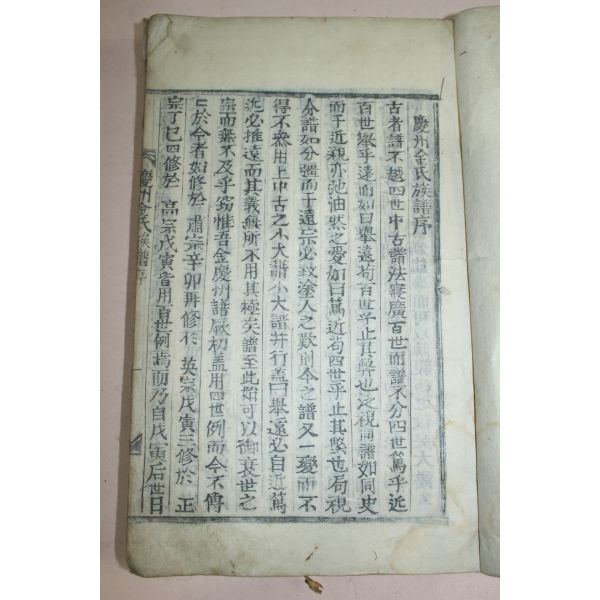 慶州金氏族譜序
古者譜不越四世中古譜法寖廣百世而譜不分四世篤乎近
百世舉乎遠而如曰舉遠苟百世乎止其弊也泛視同譜如同史
而于近親亦弛油然之愛如曰篤近苟四世乎止其弊也局視
分譜如分疆而于遠宗必致塗人之歎則今之譜又一變而不
得不參用上中古之小大譜小大譜幷行盖曰舉遠必自近篤
近必推遠而其義無所不用其極矣譜至此始可以御衰世之
宗而無不及乎窃惟吾金慶州譜厥初盖用四世例而今不傳
於今者如修於 肅宗辛卯再修於 英宗戊寅三修於 正
宗丁巳四修於 高宗戊寅皆用百世例焉而乃自戊寅后世日
慶州金氏族譜序